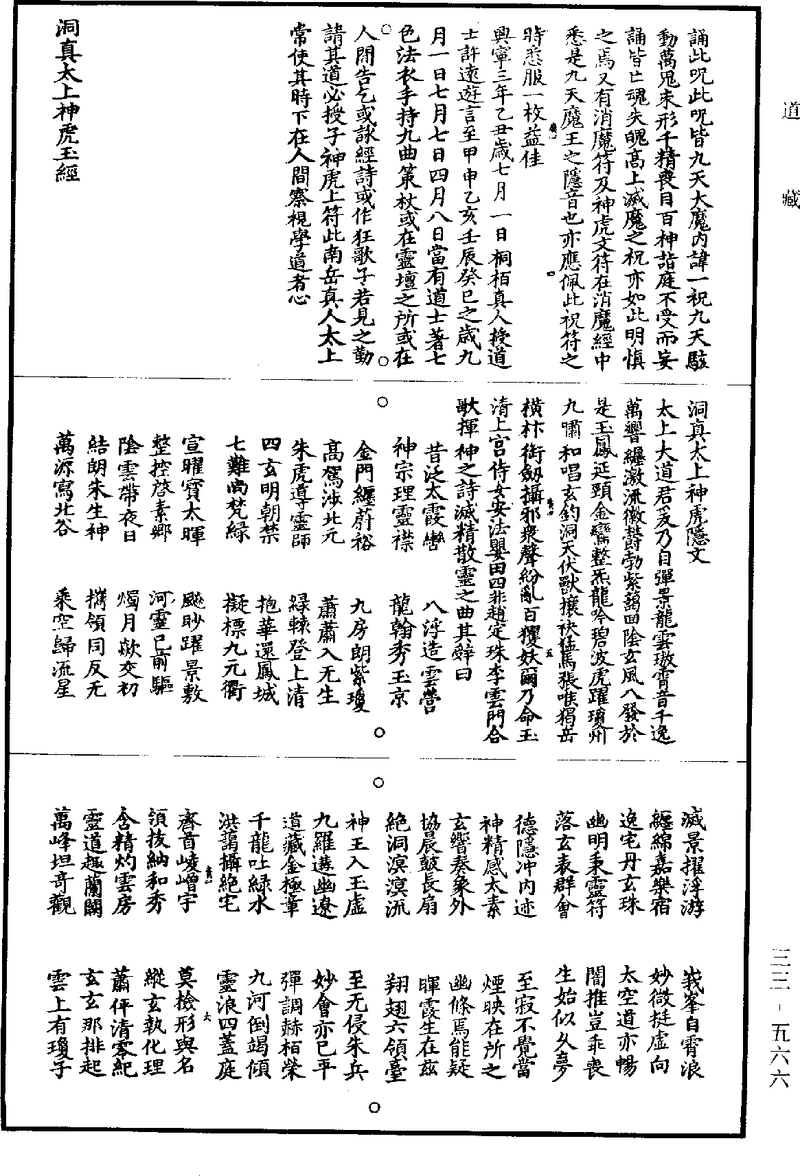 道藏
誦此呪此呪皆九天大魔內諱一祝九天駭
動萬鬼束形千精喪目百神詣庭不受而妄
誦皆亡魂失魄高上滅魔之祝亦如此明慎
之焉又有消魔符及神虎文符在消魔經中
悉是九天魔王之隱音也亦應佩此祝符之
時悉服一枚益佳
興寧三年乙丑歲七月一日桐栢真人授道
士許遠遊言至甲申乙亥壬辰癸巳之歲九
月一日七月七日四月八日當有道士著七
色法衣手持九曲策杖或在靈壇之所或在
人間告乞或詠經詩或作狂歌子若見之勤
請其道必授子神虎上符此南岳真人太上
常使其時下在人間察視學道者心
洞真太上神虎玉經
洞真太上神虎隱文
太上大道君爰乃自彈景龍雲璈霄音千逸
萬響纏激流徵鬱勃紫藹四陰玄風八發於
是玉鳳延頸金鸞整炁龍吟碧波虎躍瓊州
九嘯和唱玄鈞洞天伏獸攘袂猛馬張喉獨岳
橫杵銜劒攝邪衆聲紛亂百玃妖爾乃命玉
清上宮侍女安法嬰田四非趙定珠李雲門合
歌揮神之詩滅精散靈之曲其辭曰
昔泛太霞巒 八浮造雲營
神宗理靈襟 龍翰秀玉京
金門纏蔚裕 九房朗紫瓊
高駕涉北元 蕭蕭入无生
朱虎導靈師 綠輧登上清
四玄明朝禁 抱華還鳳城
七難尚梵緣 擬標九元衢
宣曜寶太暉 飈眇躍景敷
整控啓素鄉 河靈已前驅
陰雲帶夜日 燭月歘交初
結朗朱生神 攜領同反无
萬源寫北谷 乘空歸流星
滅景擢浮游 峩峯自霄浪
纏綿嘉樂宿 妙微挺虛向
逸宅丹玄珠 太空道亦暢
幽明秉靈符 闇推豈乖喪
落玄表群會 生始似久夢
德隱冲內迹 至寂不覺當
神精感太素 煙映在所之
玄響奏象外 幽條焉能疑
協晨皷長扇 暉霞生在茲
絕洞溟溟流 翔翅六領臺
神王入玉虛 至无侵朱兵
九羅遘幽遼 妙會亦已平
道藏金極章 彈調赫栢榮
千龍吐綠水 九河倒竭傾
洪藹攝絕宅 靈浪四蓋庭
齊首峻嶒宇 莫撿形與名
領拔納和秀 縱玄執化理
含精灼雲房 蕭伻清零紀
靈道趣蘭闕 玄玄那排起
萬峰坦奇觀 雲上有瓊子
三三-五六六